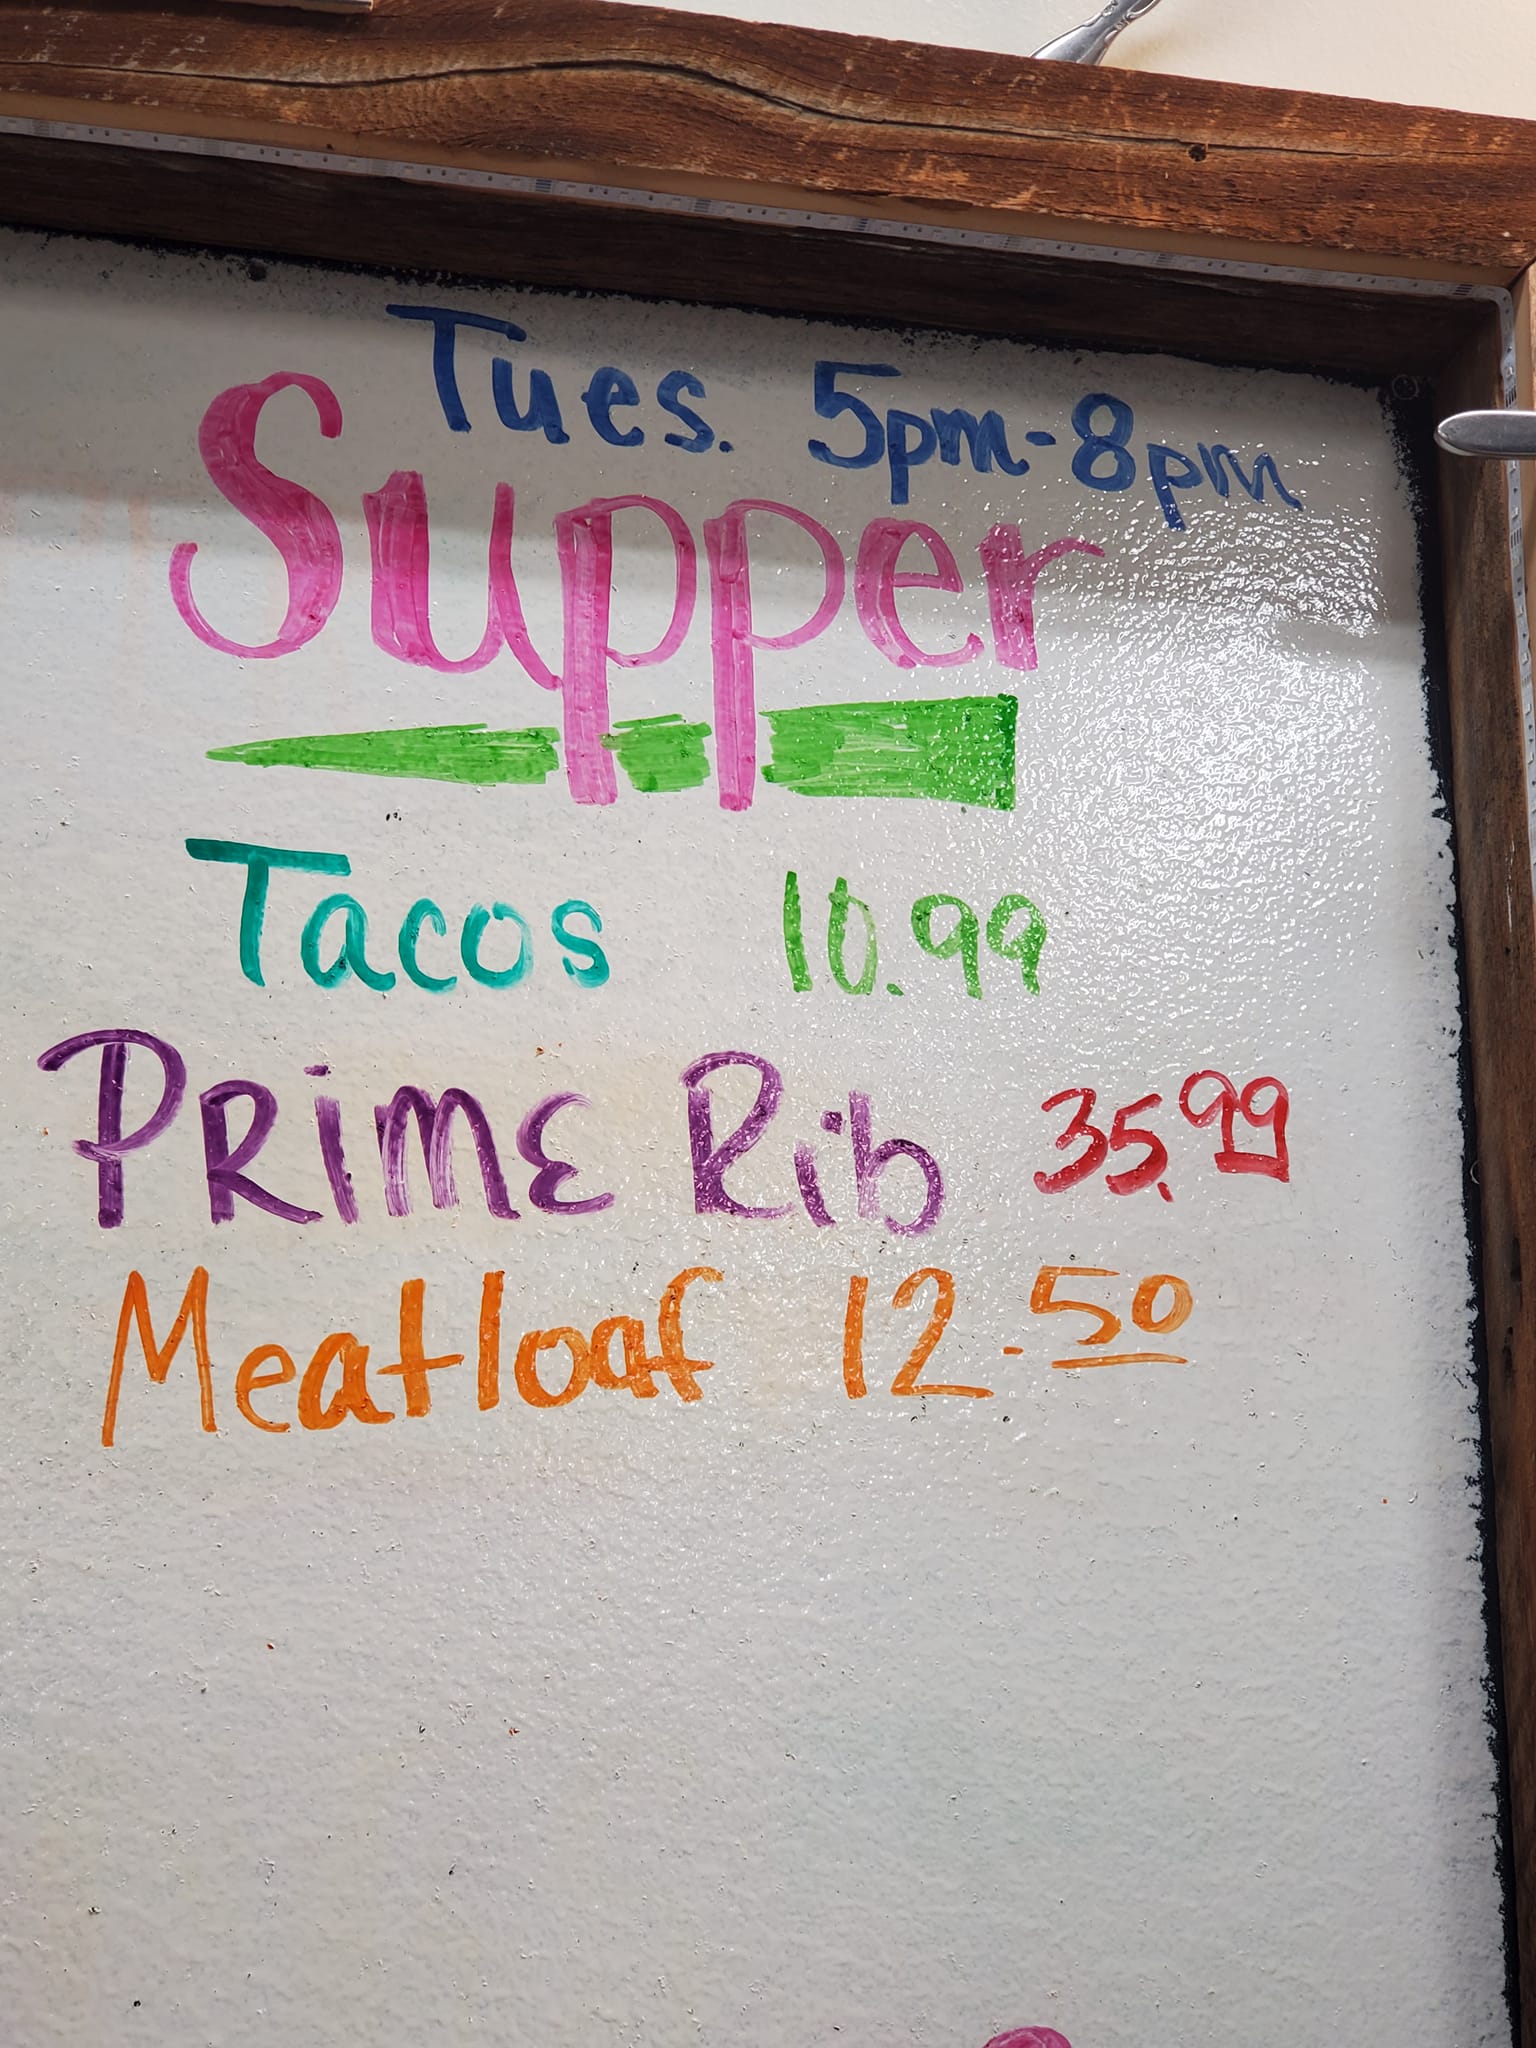 Tues. 5pm-8pm
Supper
Tacos 10.99
PRiME Rib 35.99
Meatloaf 12.50